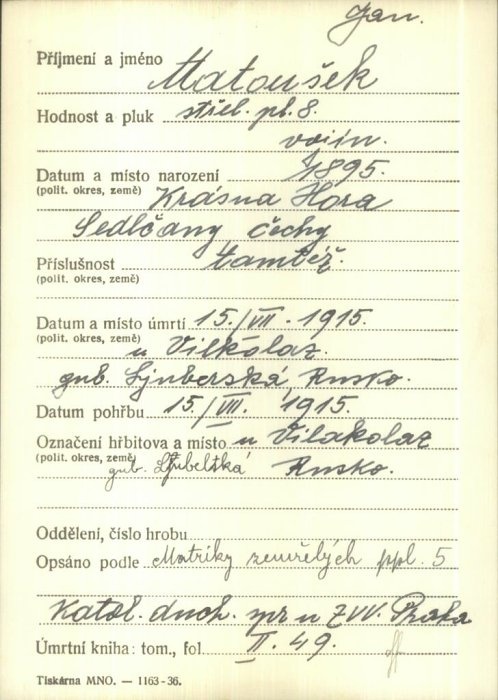 Jan.
Příjmení a jméno Matoušek
Hodnost a pluk střel. pl. 8.
vojín.
Datum a místo narození 1895.
(polit. okres, země) Krásna Hora
Sedlčany čechy
Příslušnost tamtéž.
(polit. okres, země)
Datum a místo úmrtí 15./VII. 1915.
(polit. okres, země) u Vilkolaz.
gub. Ljuberská, Rusko.
Datum pohřbu 15./VII. 1915.
Označení hřbitova a místo u Vilakolaz
(polit. okres, země) gub. Ljubelská Rusko.
Oddělení, číslo hrobu
Opsáno podle Matriky zemřelých ppl. 5
Katol. duch. spr. u ZVV. Praha
Úmrtní kniha: tom., fol. II. 49.
Tiskárna MNO. — 1163-36.